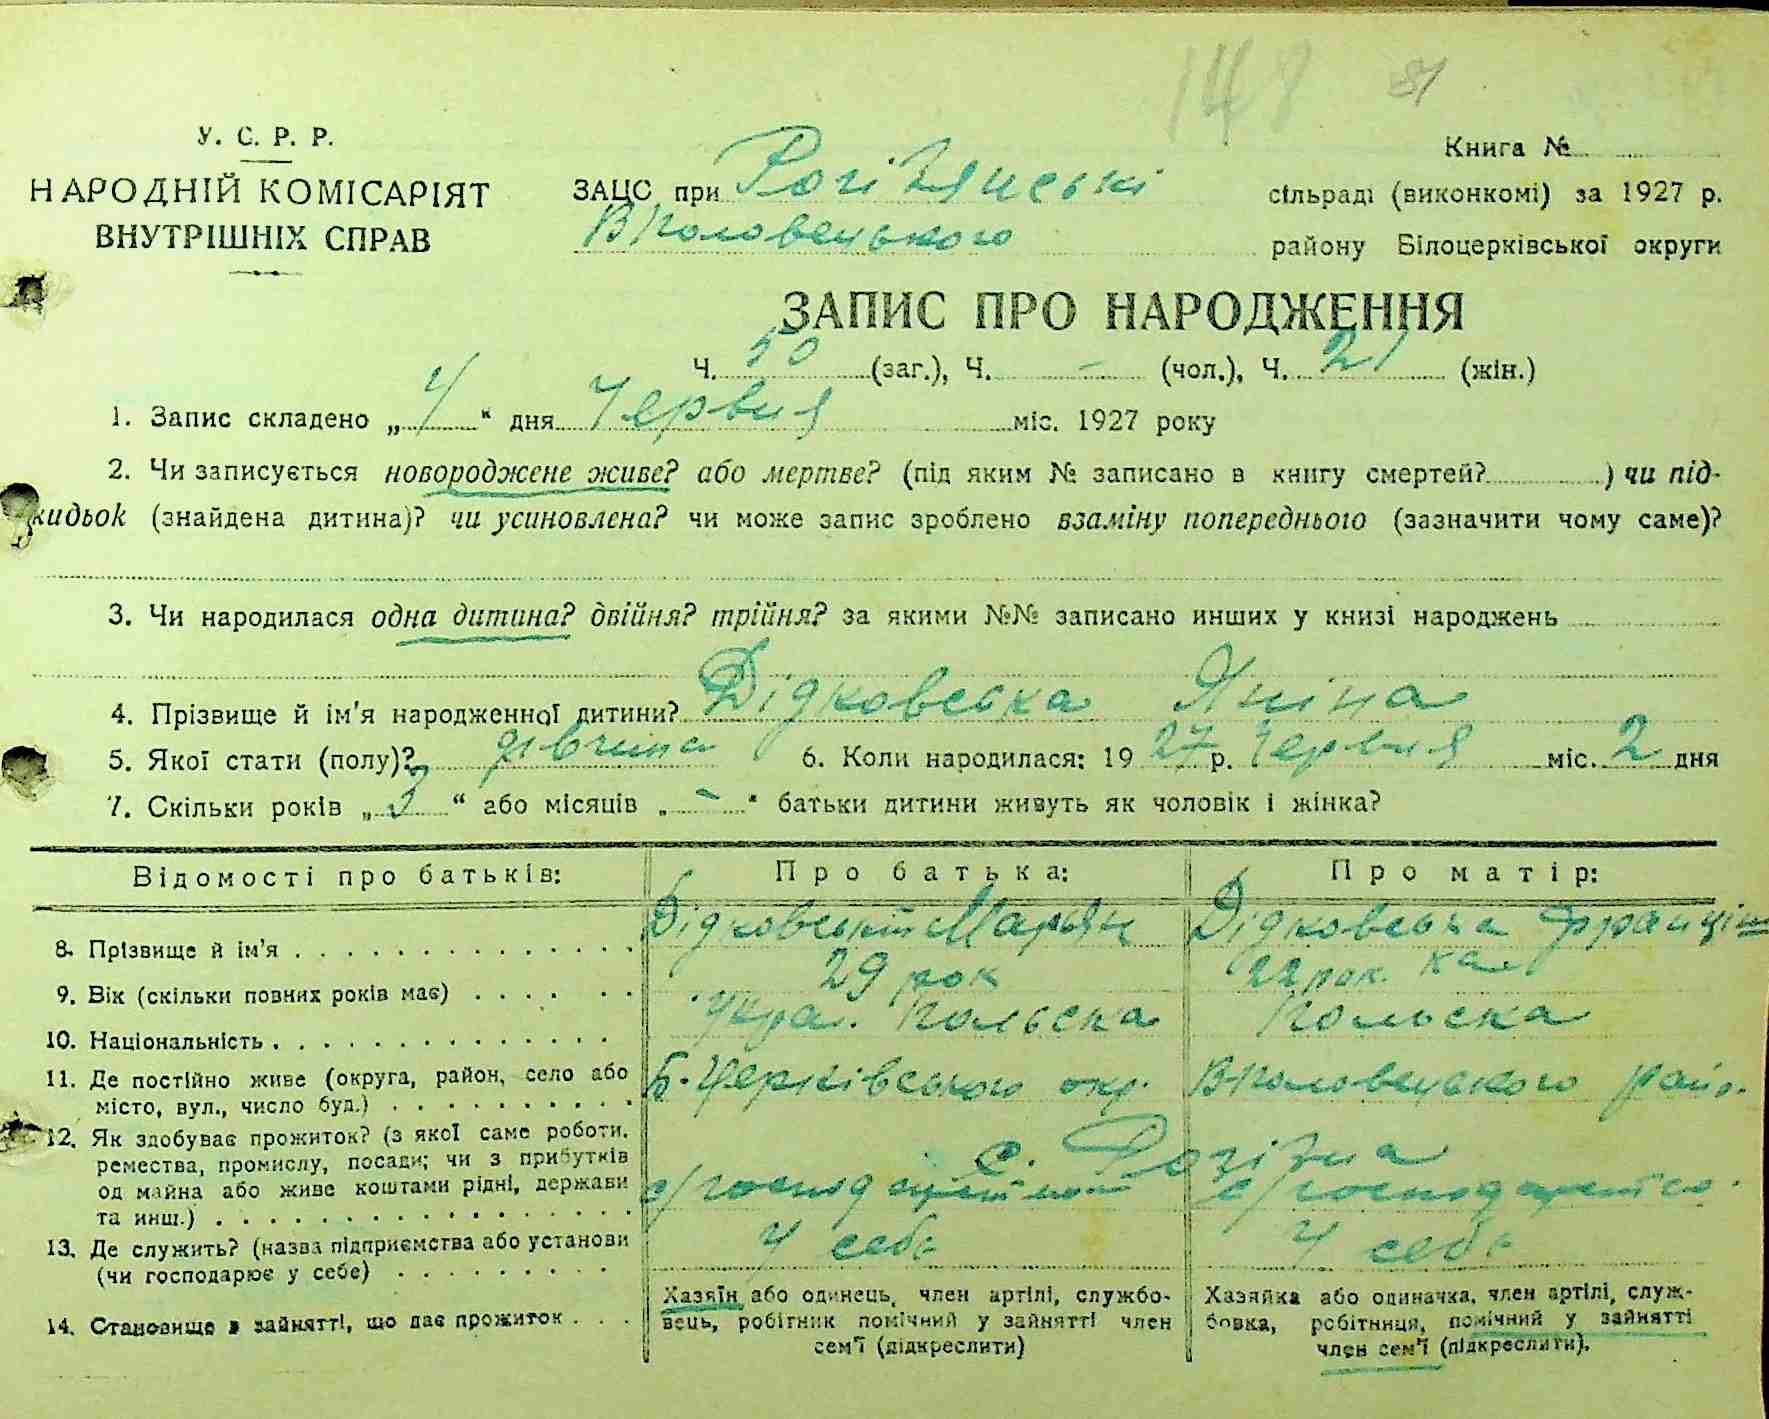 148 81
У. С. Р. Р.
НАРОДНІЙ КОМІСАРІЯТ
ВНУТРІШНІХ СПРАВ
Книга №
ЗАЦС при Рогізнянські сільраді (виконкомі) за 1927 р.
В половецького району Білоцерківської округи
ЗАПИС ПРО НАРОДЖЕННЯ
Ч. 50 (заг.), Ч. - (чол.), Ч. 21 (жін.)
1. Запис складено „ 4 “ дня Червня міс. 1927 року
2. Чи записується новороджене живе? або мертве? (під яким № записано в книгу смертей? ) чи під-
кидьок (знайдена дитина)? чи усиновлена? чи може запис зроблено взаміну попереднього (зазначити чому саме)?
3. Чи народилася одна дитина? двійня? трійня? за якими №№ записано инших у книзі народжень
4. Прізвище й ім'я народженної дитини? Дідковська Яніна
5. Якої стати (полу)? дівчина 6. Коли народилася: 19 27 р. Червня міс. 2 дня
7. Скільки років „ 3 “ або місяців „ - “ батьки дитини живуть як чоловік і жінка?
Відомості про батьків: Про батька: Про матір:
8. Прізвище й ім'я Дідковський Марьян Дідковська Францішка
9. Вік (скільки повних років має) 29 рок 22 рок.
10. Національність Укра. Польска Польска
11. Де постійно живе (округа, район, село або
місто, вул., число буд.) Б. Церківського окр. В половецького райо.
с. Розізна
12. Як здобуває прожиток? (з якої саме роботи,
ремества, промислу, посади; чи з прибутків
од майна або живе коштами рідні, держави
та инш.) с/господ с/господ
13. Де служить? (назва підприємства або установи
(чи господарює у себе) У себе У себе
14. Становище в зайнятті, що дає прожиток
Хазяїн або одинець, член артілі, службо-
вець, робітник помічний у зайнятті член
сем'ї (підкреслити)
Хазяйка або одиначка, член артілі, служ-
бовка, робітниця, помічний у зайнятті
член сем'ї (підкреслити).